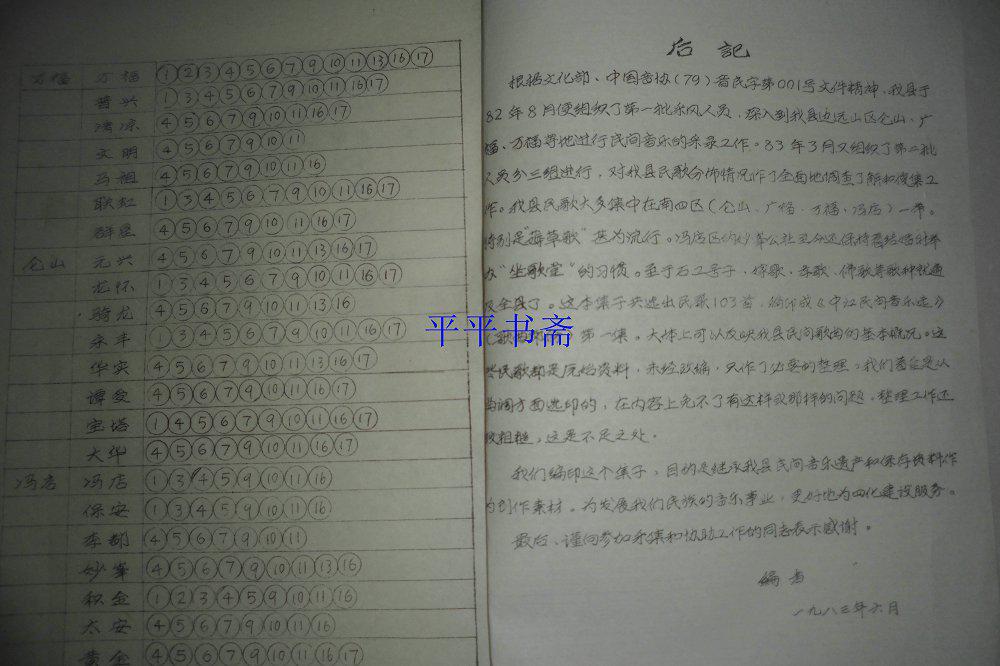 万福 万福 ①②③④⑤⑥⑦⑨⑩⑪⑬⑯⑰
普兴 ①③④⑤⑥⑦⑨⑩⑪⑯⑰
清凉 ④⑤⑥⑦⑨⑩⑪⑯⑰
文明 ④⑤⑥⑦⑨⑩⑪
马祖 ④⑤⑥⑦⑨⑩⑪⑯
联虹 ①③④⑤⑥⑦⑨⑩⑪⑯⑰
群星 ④⑤⑥⑦⑨⑩⑪⑯⑰
仑山 元兴 ④⑤⑥⑦⑨⑩⑪⑬⑯⑰
龙怀 ①③④⑤⑥⑦⑨⑩⑪⑯⑰
骑龙 ④⑤⑥⑦⑨⑩⑬⑯
永丰 ①③④⑤⑥⑦⑨⑩⑪⑯⑰
华实 ④⑤⑥⑦⑨⑩⑪⑬⑯⑰
谭受 ④⑤⑥⑦⑨⑩⑪⑯⑰
宝塔 ①④⑤⑥⑦⑨⑩⑪⑯⑰
大华 ④⑤⑥⑦⑨⑩⑪⑯⑰
冯店 冯店 ①③④⑤⑨⑩⑪⑯
保安 ①③④⑤⑦⑨⑩⑪⑯
李都 ④⑤⑥⑦⑨⑩⑪
妙峯 ④⑤⑥⑦⑨⑩⑪⑯⑰
积金 ①②③④⑤⑨⑩⑪⑯
太安 ④⑤⑥⑦⑨⑩⑪⑯
黄金 ④⑤⑥⑦⑨⑩⑪⑯⑰
后記
根据文化部、中国音协(79)音民字第001号文件精神,我县于
82年8月便组织了第一批采风人员,深入到我县边远山区仑山、广
福、万福等地进行民间音乐的采录工作。83年3月又组织了第二批
人员分三组进行,对我县民歌分佈情况作了全面地调查了解和搜集工
作。我县民歌大多集中在南四区(仑山、广福、万福、冯店)一带。
特别是"薅草歌"甚为流行。冯店区的妙峯公社至今还保持着结婚时举
办"坐歌堂"的习惯。至于石工号子、嫁歌、孝歌、佛歌等歌种就遍
及全县了。这本集子共选出民歌103首,编印成《中江民间音乐选》
第一集。大体上可以反映我县民间歌曲的基本概况。这
些民歌都是原始资料,未经改编,只作了必要的整理,我们着重是从
曲调方面选印的,在内容上免不了有这样或那样的问题,整理工作还
较粗糙,这是不足之处。
我们编印这个集子,目的是继承我县民间音乐遗产和保存资料作
为创作素材。为发展我们民族的音乐事业,更好地为四化建设服务。
最后、谨向参加采集和协助工作的同志表示感谢。
编者
一九八三年六月
平平书斋